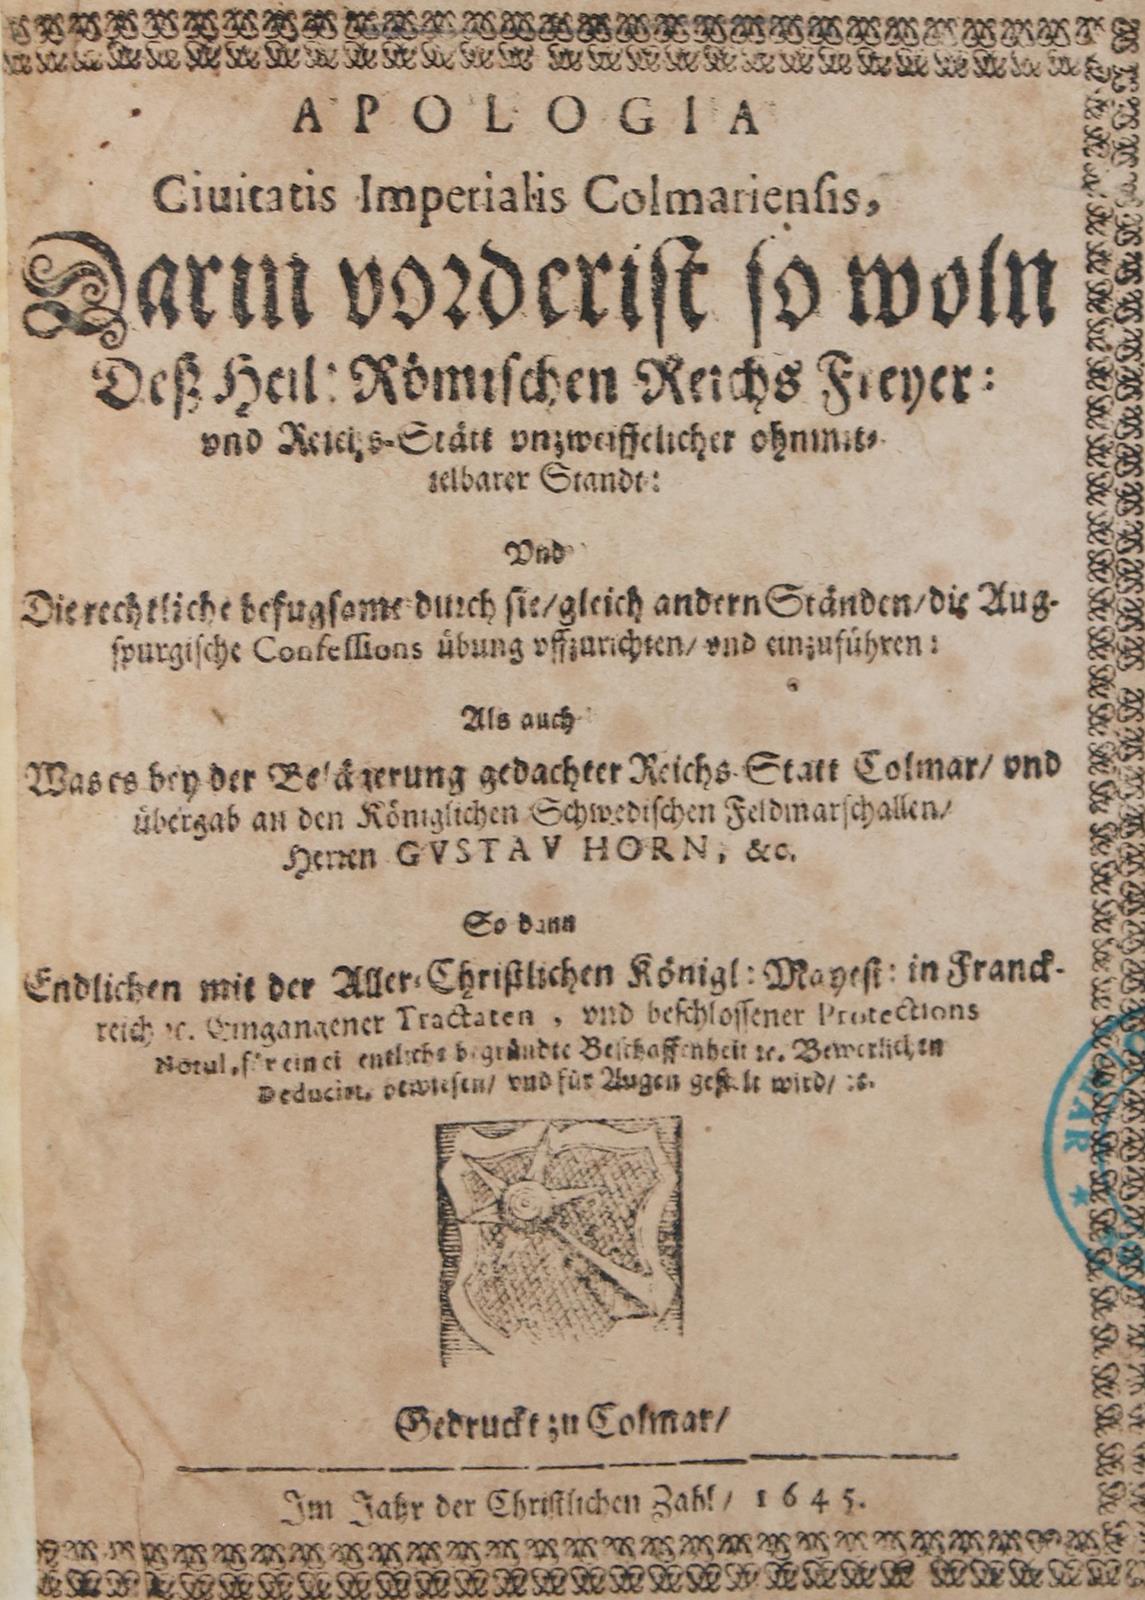 APOLOGIA
Ciuitatis Imperialis Colmariensis,
Darin vorderist so woln
Deß Heil: Römischen Reichs Freyer:
vnd Reichs-Stätt vnzweiffelicher ohnmit-
telbarer Standt:
Vnd
Die rechtliche befugsame durch sie/ gleich andern Ständen/ die Aug-
spurgische Confessions übung vffzurichten/ vnd einzuführen:
Als auch
Was es bey der Belägerung gedachter Reichs-Statt Colmar/ vnd
übergab an den Königlichen Schwedischen Feldmarschallen/
Herren GVSTAV HORN, &c.
So dann
Endlichen mit der Aller-Christlichen Königl: Mayest: in Franck-
reich ꝛc. Eingangener Tractaten, vnd beschlossener Protections
Notul, für ein ei entliche begründte Beschaffenheit ꝛc. Bewerlichen
Deducirt, bewiesen/ vnd für Augen gestelt wird/ ꝛc.
Gedruckt zu Colmar/
Im Jahr der Christlichen Zahl/ 1645.